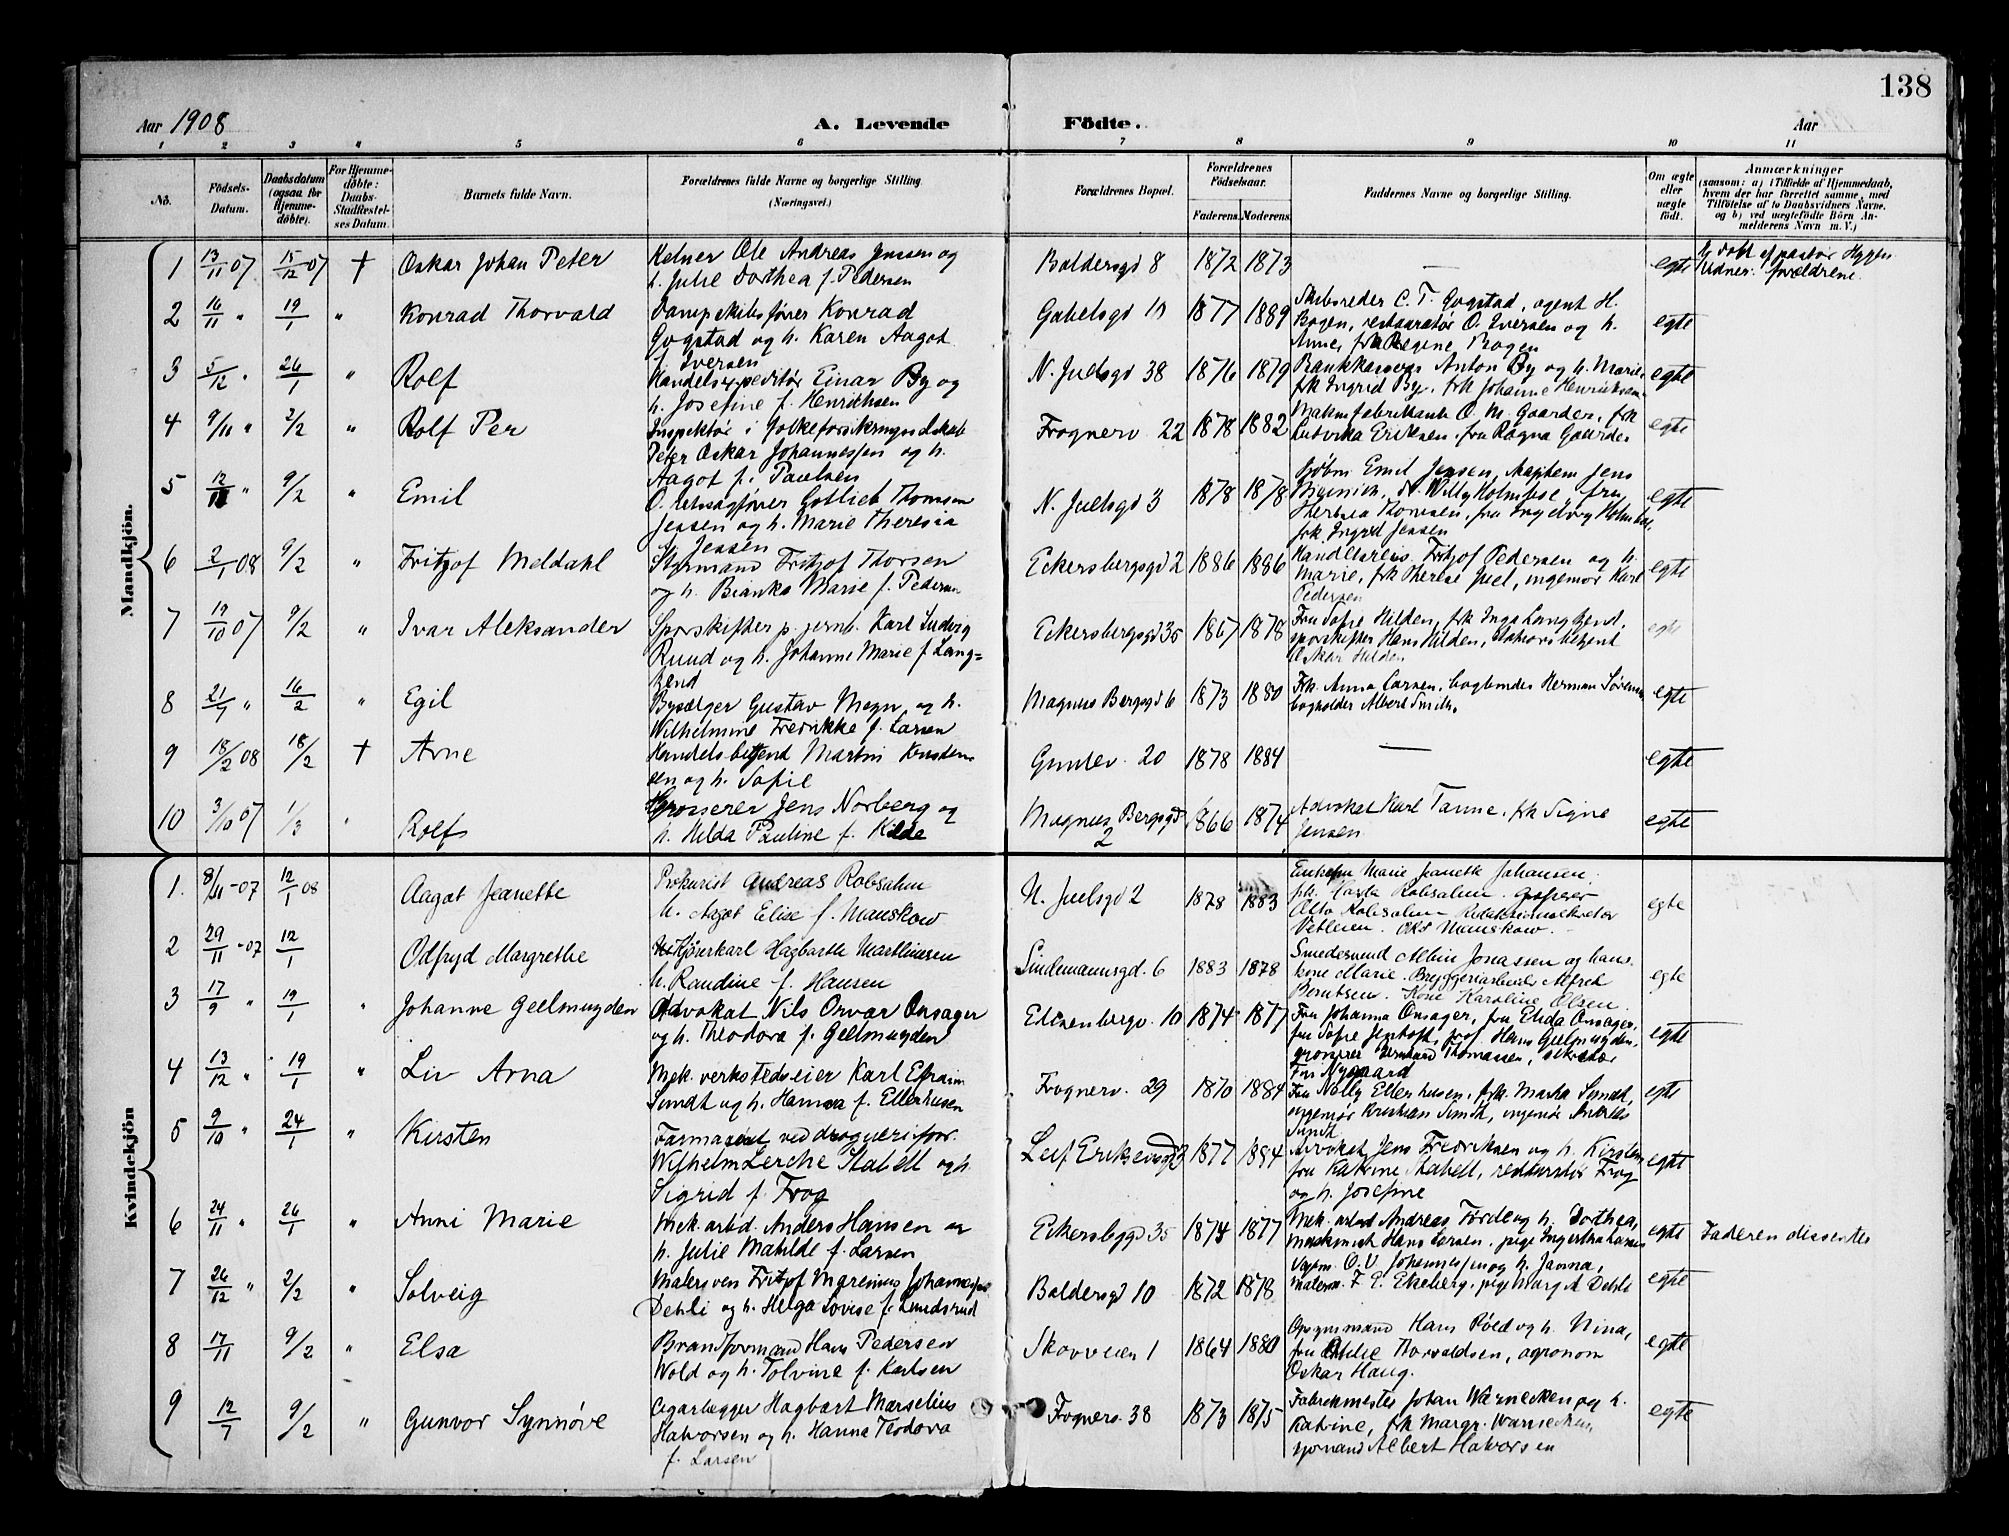 138
Aar 1908
A. Levende Födte.
Aar
1 2 3 4 5 6 7 8 9 10 11
No. Födsels-Datum. Daabsdatum (ogsaa for Hjemme-döbte). For Hjemme-döbte: Daabs-Stadfæstel-ses Datum. Barnets fulde Navn. Forældrenes fulde Navne og borgerlige Stilling. (Næringsvei.) Forældrenes Bopæl. Forældrenes Födselsaar. Faderens. Moderens. Faddernes Navne og borgerlige Stilling. Om ægte eller uægte födt. Anmærkninger (saasom: a) i Tilfælde af Hjemmedaab, hvem der har forrettet samme, med Tilföielse af to Daabsvidners Navne, og b) ved uægtefödte Börn An-melderens Navn m. V.)
Mandkjön.
1 13/11 07 15/12 07 † Oskar Johan Peter Kelner Ole Andreas Jensen og
h. Julie Dorthea f. Pedersen Baldersgd 8 1872 1873 — egte Nøddøbt af pastor Vidner: forældrene.
2 16/11 " 19/1 " Konrad Thorvald Dampskibsfører Konrad
Gogstad og h. Karen Aagot
f. Iversen Gabelsgd 10 1877 1889 Skibsreder C. T. Gogstad, agent H.
Bogen, restauratør O. Iversen og h.
Anne, frk Regine Bogen egte
3 5/12 " 26/1 " Rolf Handelsexpeditør Einar By og
h. Josefine f. Henrichsen N. Juelsgd 38 1876 1879 Bankkasserer Anton By og h. Marie,
frk Ingrid By, frk Johanne Henriksen egte
4 9/11 " 2/2 " Rolf Per Inspektør i Folkeforsikringsselskab
Peter Oskar Johannessen og h.
Aagot f. Paulsen Frognerv. 22 1878 1882 Maskinfabrikant O. M. Gaarder, frk
Ludvika Eriksen, fru Ragna Gaarder egte
5 12/11 " 9/2 " Emil O. retssagfører Gotlieb Thomsen
Jensen og h. Marie Theresia
f. Jensen N. Juelsgd 3 1878 1878 Kjøbm Emil Jensen, kaptein Jens
fru Ingeborg
frk Ingrid Jensen egte
6 2/1 08 9/2 " Fritzof Meldahl Styrmand Fritzof Thorsen
og h. Bianka Marie f. Pedersen Eckersbergsgd 2 1886 1886 Handelsreis. Fritzof Pedersen og h.
Marie, frk Therese Juel, ingeniør Karl
Pedersen egte
7 19/10 07 9/2 " Ivar Aleksander Sporskifter p. jernb. Karl Ludvig
Ruud og h. Johanne Marie f. Lang-
Eckersbergsgd 35 1867 1878 Fru Sofie Hilden, frk Inga
sporskifter Hans Hilden, stationsbetjent
Oskar Hilden egte
8 21/7 " 16/2 " Egil Bysælger Gustav Megn og h.
Wilhelmine Fredrikke f. Larsen Magnus Bergsgd 6 1873 1880 Frk. Anna Larsen, bogbinder Herman Sørensen
bogholder Albert Smith. egte
9 18/2 08 18/2 † Arne Handelsbetjent Martin Knudsen
og h. Sofie 20 1878 1884 — egte
10 3/10 07 1/3 " Rolf Grosserer Jens Norberg og
h. Hilda Pauline f. Kilde Magnus Bergsgd
2 1866 1874 Advokat Karl Tanne, frk Signe
Jensen egte
Kvindekjön
1. 8/11 -07 12/1 08 Aagot Jeanette Prokurist Andreas Robsahm
h. Aagot Elise f. Manskow N. Juelsgd 2 1878 1883 Enkefru Marie Jeanette Johansen
Otto Robsahm Redaktionssekretær
Manskow. egte
2 29/11 -07 12/1 Odfryd Margrethe Kjørerkarl Hagbarth Marthinsen
h. Randine f. Hansen Lindemannsgd. 6 1883 1878 Smedesvend Albin Jonassen og hans
kone Marie. Bryggeriarbeider Alfred
Berntsen. Kone Karoline Olsen. egte
3 17/9 " 19/1 " Johanne Geelmuyden Advokat Nils Onvar Onsager
og h. Theodora f. Geelmuyden Eilsenbergv. 10 1874 1877 Fru Johanna Onsager, fru Elida Onsager,
fru Sofie prof. Hans Geelmuyden,
grosserer Bernhard Thomassen, sekretær
Nygaard egte
4 13/12 " 19/1 " Liv Arna Mek. verkstedseier Karl Efraim
Sundt og h. Hanna f. Ellerhusen Frognerv. 29 1870 1884 Fru Nelly Ellerhusen, frk. Martha Sundt,
ingeniør Kristian Sundt, ingeniør Andreas
Sundt egte
5 9/10 " 24/1 " Kirsten Farmaceut, ved drogueriforr.
Wilhelm Lerche Stabell og h
Sigrid f. Frog Leif Eriksensgd 3 1877 1884 Advokat Jens Fredriksen og h. Kirsten,
fru Katrine Stabell, redaktør Frog
og h. Josefine egte
6 24/11 " 26/1 " Anni Marie Mek. arbd. Anders Hansen og
h. Julie Matilde f. Larsen Eckersbggd 35 1874 1877 Mek. arbd Andreas Førde og h. Dorthea,
maskinist Hans Larsen, pige egte Faderen dissenter
7 26/12 " 2/2 " Solveig Malersven Fritzof Marenius Johannessen
Dehli og h. Helga Lovise f. Lundsrud Baldersgd 10 1872 1878 O. V. Johannessen og h. Janna,
malerm. F. E. Ekeberg, pige Margit Dehli egte
8 17/11 9/2 " Elsa Brandformand Hans Pedersen
Wold og h. Tolvine f. Karlsen Skovveien 1 1864 1880 Opsynsmand Hans Røed og h. Nina,
fru Thorvaldsen, agronom
Oskar Haug. egte
9 12/7 9/2 " Gunvor Synnøve Cigarlægger Hagbart Marselius
Halvorsen og h. Hanna Teodora
f. Larsen Frognerv 38 1873 1875 Fabrikmester Johan Warnecken og h.
Katrine, frk Margr. Warnecken,
sjømand Albert Halvorsen egte